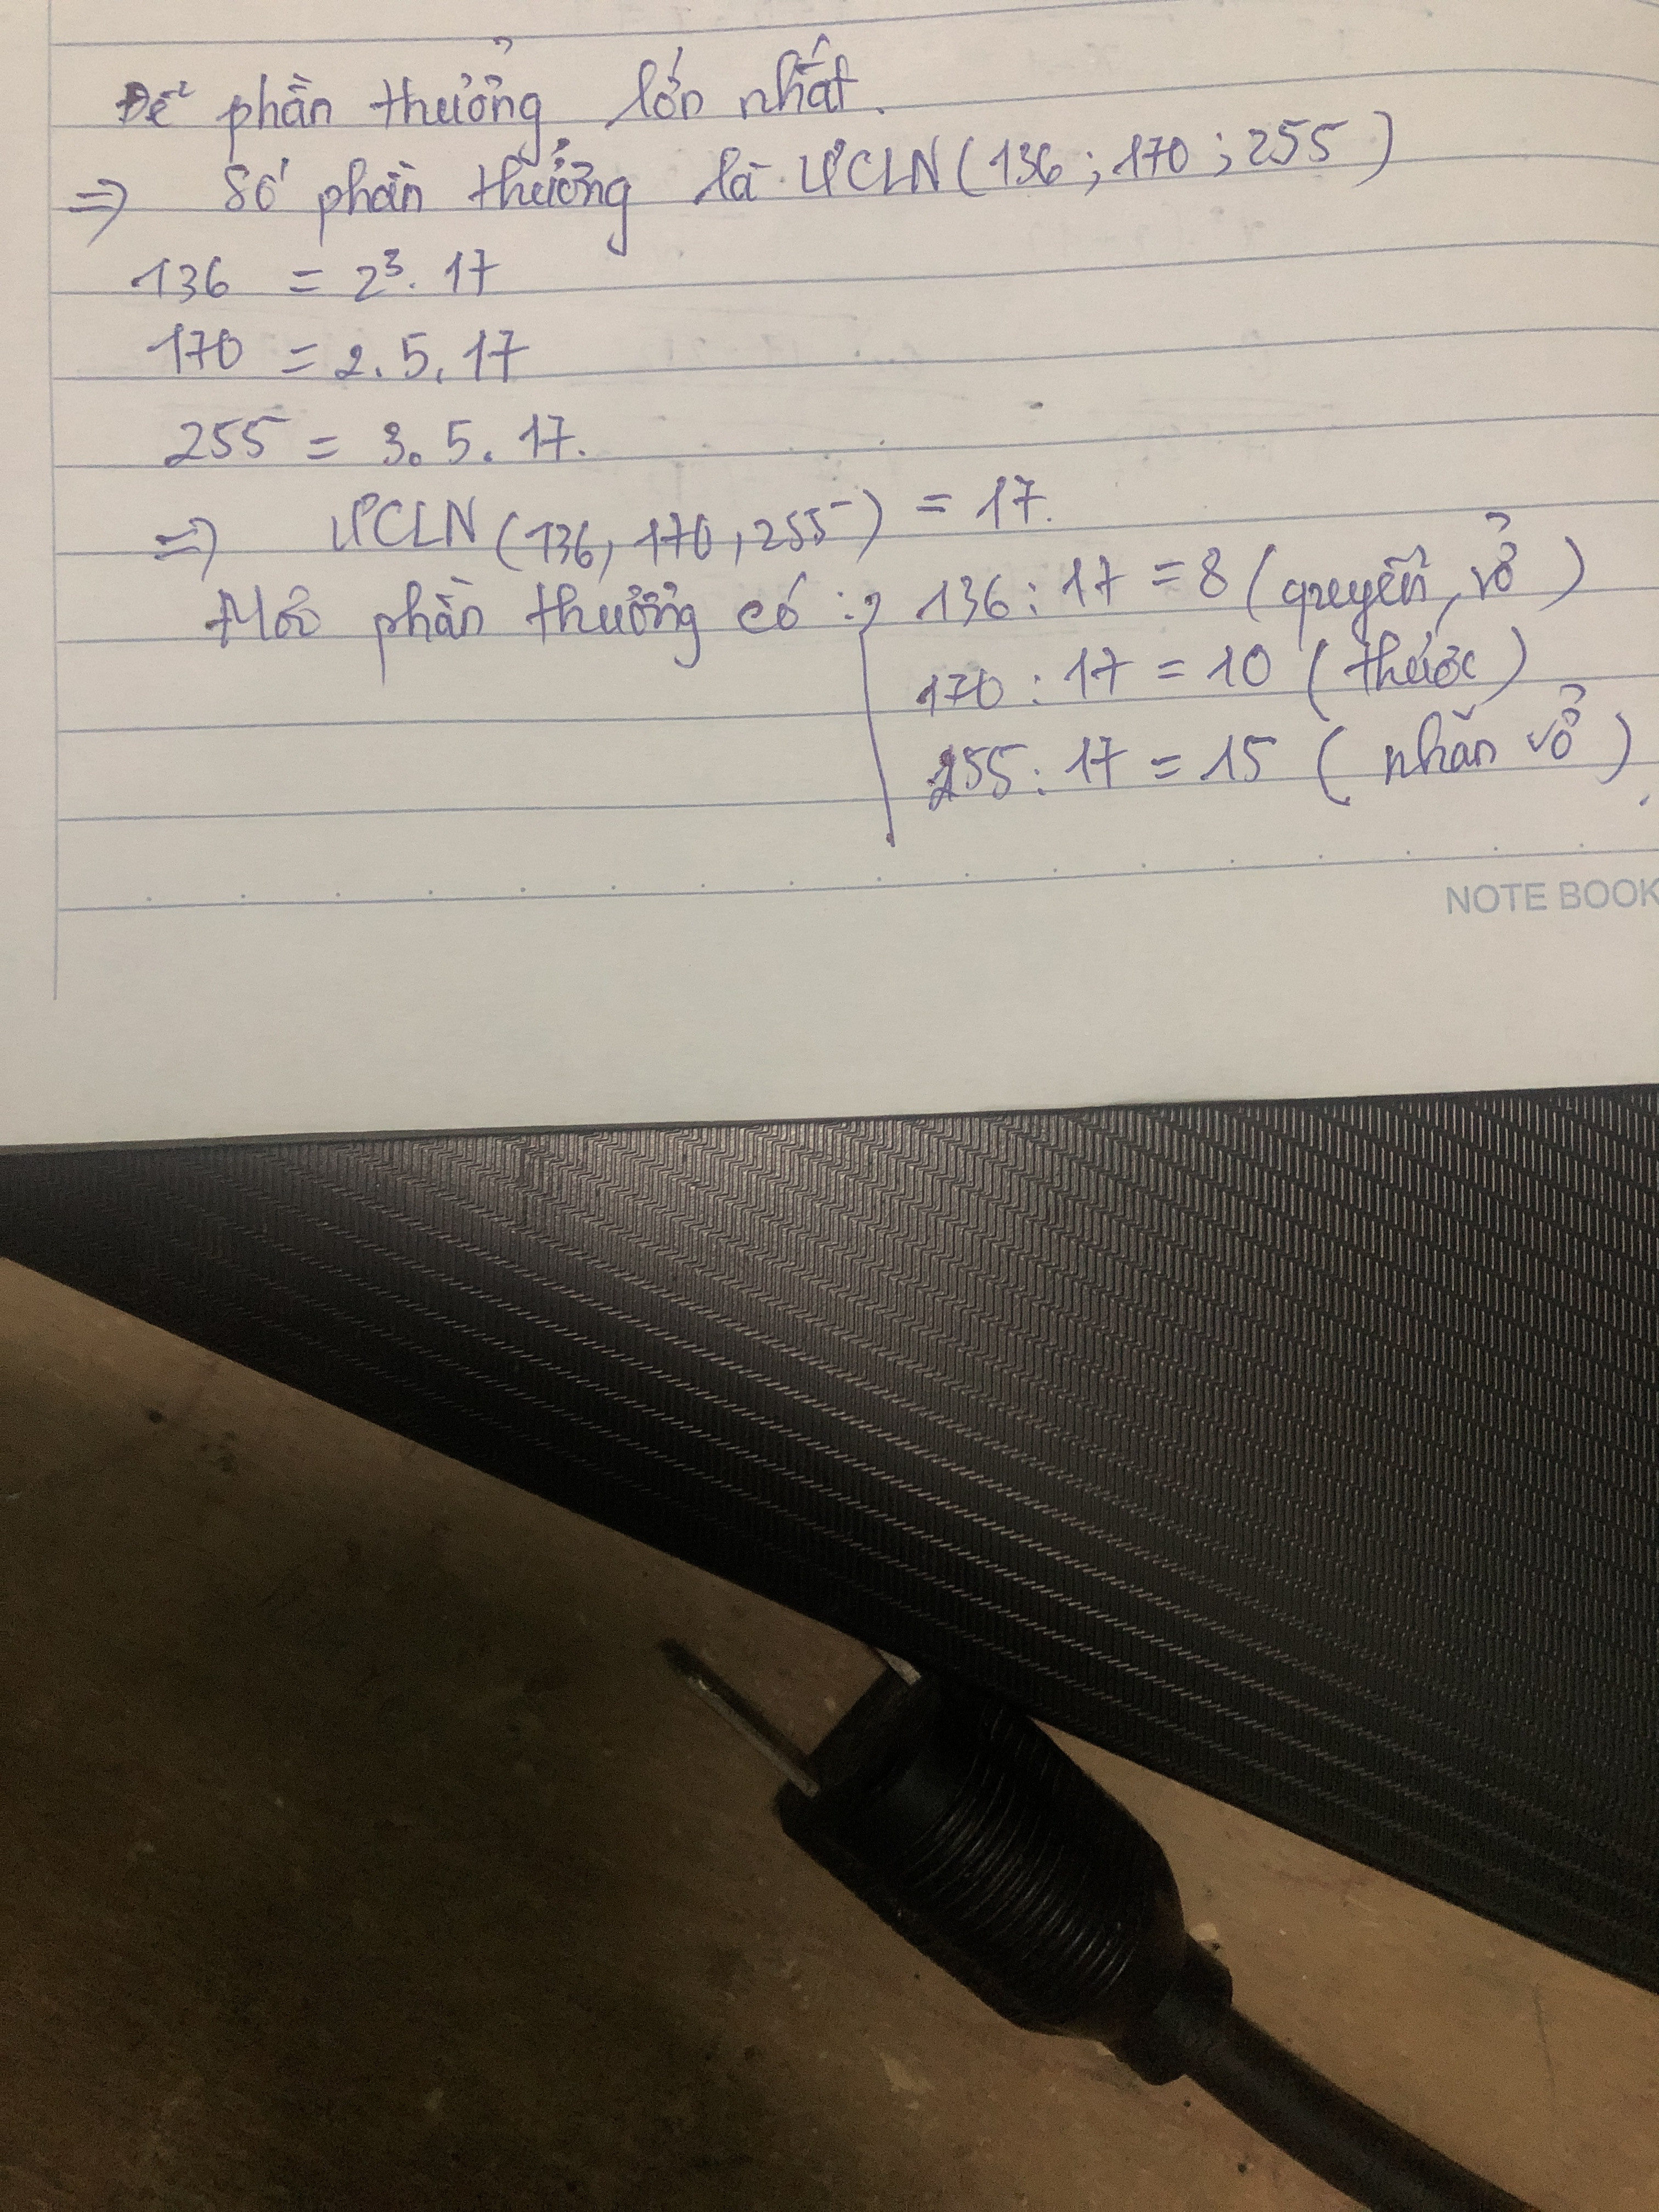 Để phần thưởng lớn nhất.
=> Số phần thưởng là ƯCLN(136; 170; 255)
136 = 2³. 17
170 = 2. 5. 17
255 = 3. 5. 17.
=> ƯCLN(136, 170, 255) = 17.
Mỗi phần thưởng có: 136 : 17 = 8 (quyển vở)
170 : 17 = 10 (thước)
255 : 17 = 15 (nhãn vở).
NOTE BOOK